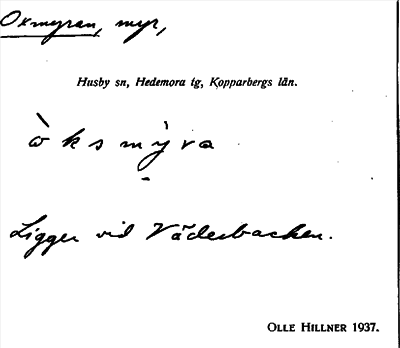 Oxmyran, myr,
Husby sn, Hedemora tg, Kopparbergs län.
ò k s m ỳ r a
Ligger vid Väderbacken.
OLLE HILLNER 1937.